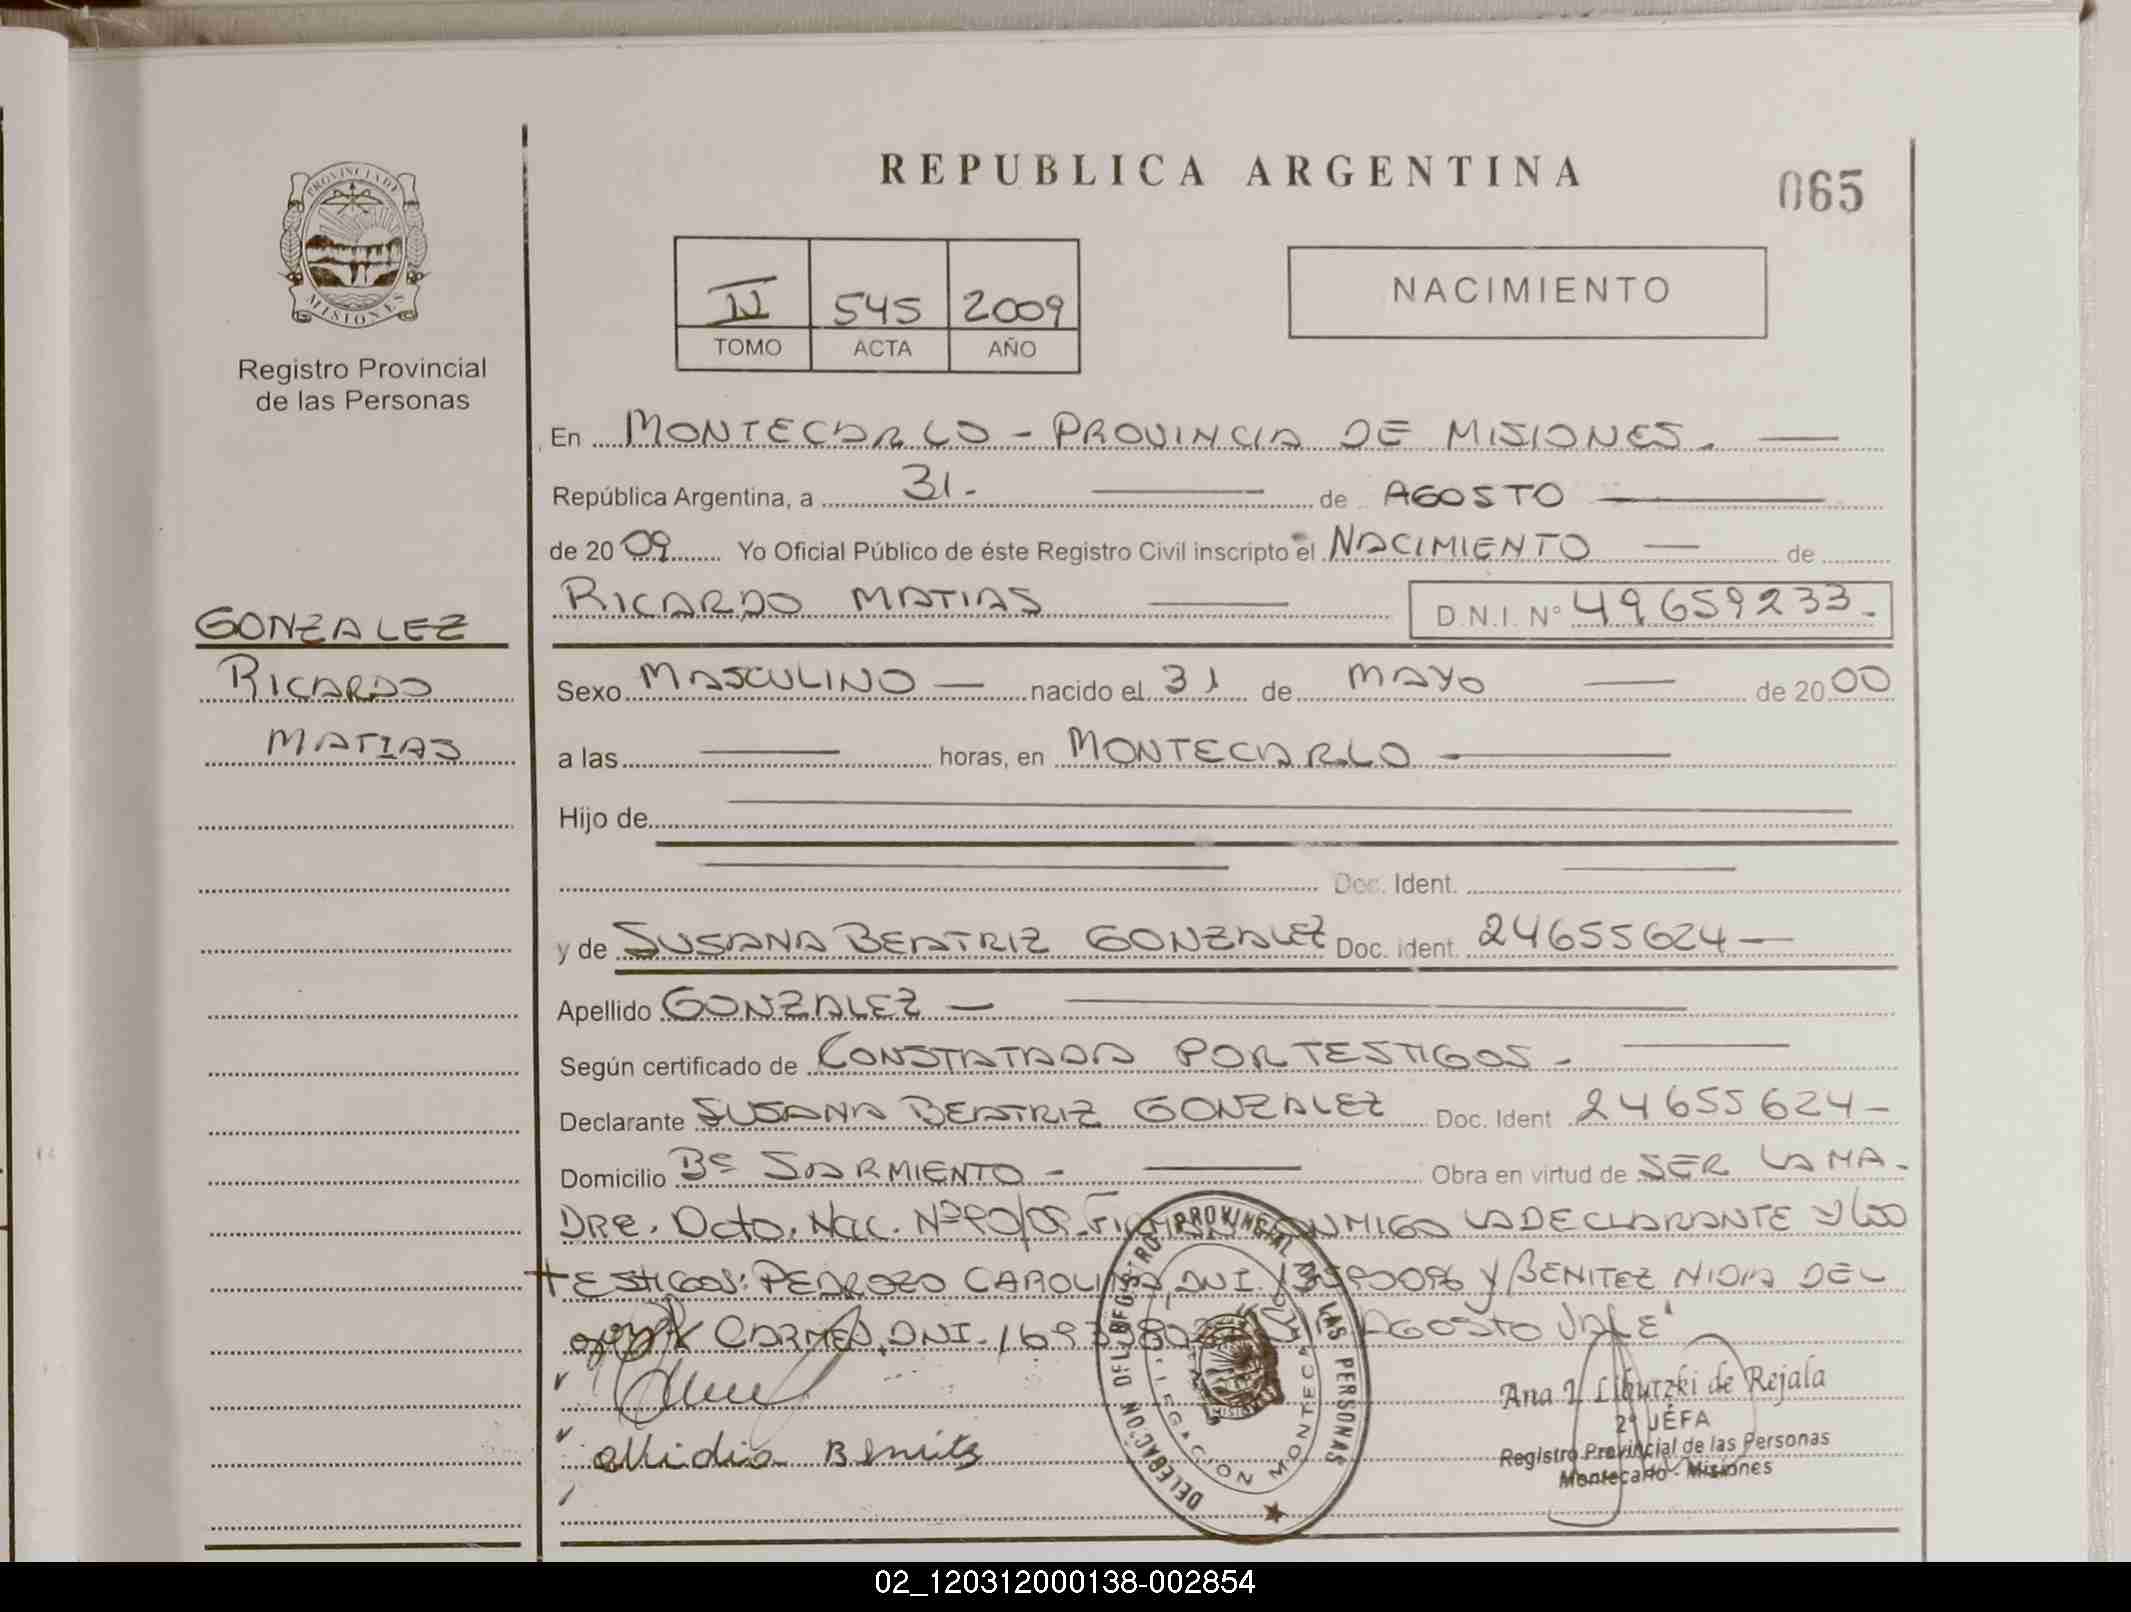 REPUBLICA ARGENTINA
065
PROVINCIA DE
MISIONES
Registro Provincial
de las Personas
II 545 2009
TOMO ACTA AÑO
NACIMIENTO
En MONTECARLO - PROVINCIA DE MISIONES.
República Argentina, a 31. de AGOSTO
de 2009 Yo Oficial Público de éste Registro Civil inscripto el NACIMIENTO de
RICARDO MATIAS D.N.I. Nº 49659233.
GONZALEZ
RICARDO
MATIAS
Sexo MASCULINO nacido el 31 de MAYO de 2000
a las horas, en MONTECARLO
Hijo de
Doc. Ident.
y de SUSANA BEATRIZ GONZALEZ Doc. Ident. 24655624
Apellido GONZALEZ
Según certificado de CONSTATADA POR TESTIGOS.
Declarante SUSANA BEATRIZ GONZALEZ Doc. Ident 24655624
Domicilio Bº SARMIENTO Obra en virtud de SER LA MA-
DRE. Dcto. Nac. Nº 90/09. LA DECLARANTE Y LOS
TESTIGOS: PEDROZO CAROLINA, DNI Y BENITEZ NIDIA DEL
CARMEN, DNI. AGOSTO VALE
Nidia Benitez
DELEGACION DEL REGISTRO PROVINCIAL DE LAS PERSONAS
DELEGACION MONTECA
Ana I. Liburzki de Rejala
2º JEFA
Registro Provincial de las Personas
Montecarlo - Misiones
02_120312000138-002854